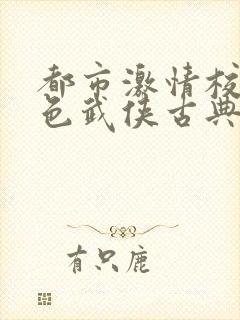 都市激情校
色武侠古典
有只鹿